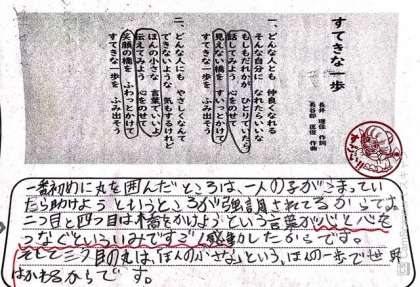 すてきな一歩
長井 理佳 作詞
長谷部 匡俊 作曲
一、どんな人とも 仲良くなれる
そんな自分に なれたらいいな
もしもだれかが ひとりでいたら
話してみよう 心をのせて
見えない橋を すいっとかけて
すてきな一歩を ふみ出そう
二、どんな人にも やさしくなんて
できないような 気もするけれど
ほんの小さな 言葉でいいよ
伝えてみよう 心をのせて
笑顔の橋を ふわっとかけて
すてきな一歩を ふみ出そう
一番初めに丸を囲んだところは、一人の子がこまってい
たら助けよう というところが強調されてるからです。
二つ目と四つ目は橋をかけようという言葉が心と心を
つなぐといういみですごく感動したからです。
そして三つ目の丸は、ほんの小さないという、ほんの一歩で世界
はかわるからです。